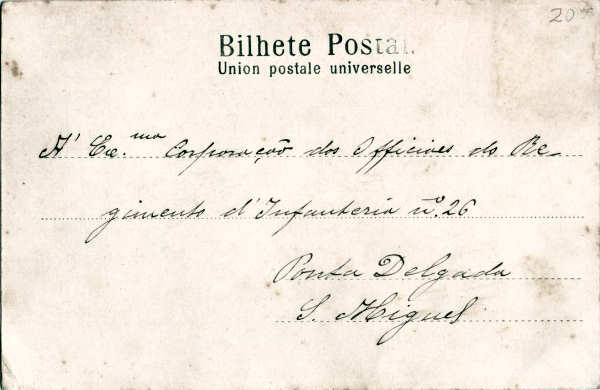 20
Bilhete Postal.
Union postale universelle
A' Ex.ma Corporação dos Officiaes do Re-
gimento d'Infanteria nº. 26
Ponta Delgada
S. Miguel